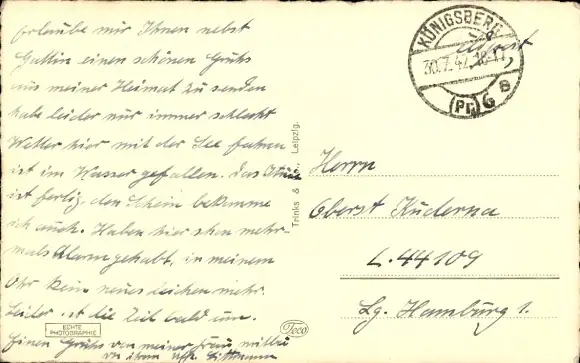 Erlaube mir Ihnen nebst
Gattin einen schönen Gruß
aus meiner Heimat zu senden
habe leider nur immer schlecht
Wetter hier mit der See fahren
ist im Wasser gefallen. Das
ist fertig, den Schein bekomme
ich auch. Haben hier schon mehr-
mals Alarm gehabt, in meinem
Ohr kein neues Zeichen mehr.
Leider ist die Zeit bald um.
Einen Gruß von meiner Frau
von ihrem Uffz. Dittmann
ECHTE
PHOTOGRAPHIE
Trinks & Leipzig.
Teco
KÖNIGSBERG
30.7.42
(Pr) 6
Herrn
Oberst Kuderna
L. 44109
Lg. Hamburg 1.